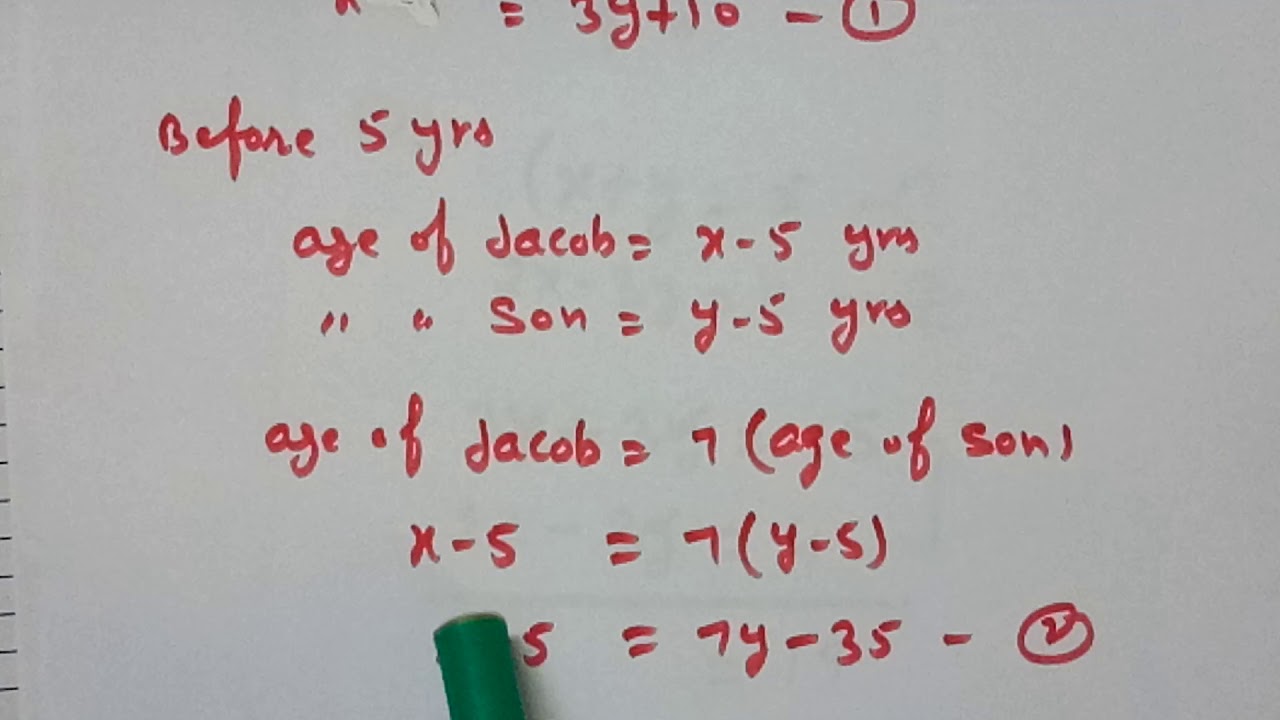 x = 3y+10 - ①
Before 5 yrs
age of Jacob = x-5 yrs
" " Son = y-5 yrs
age of Jacob = 7 (age of son)
x-5 = 7(y-5)
5 = 7y-35 - ②